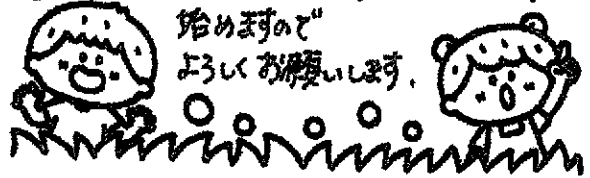 始めますので
よろしくお願いします.